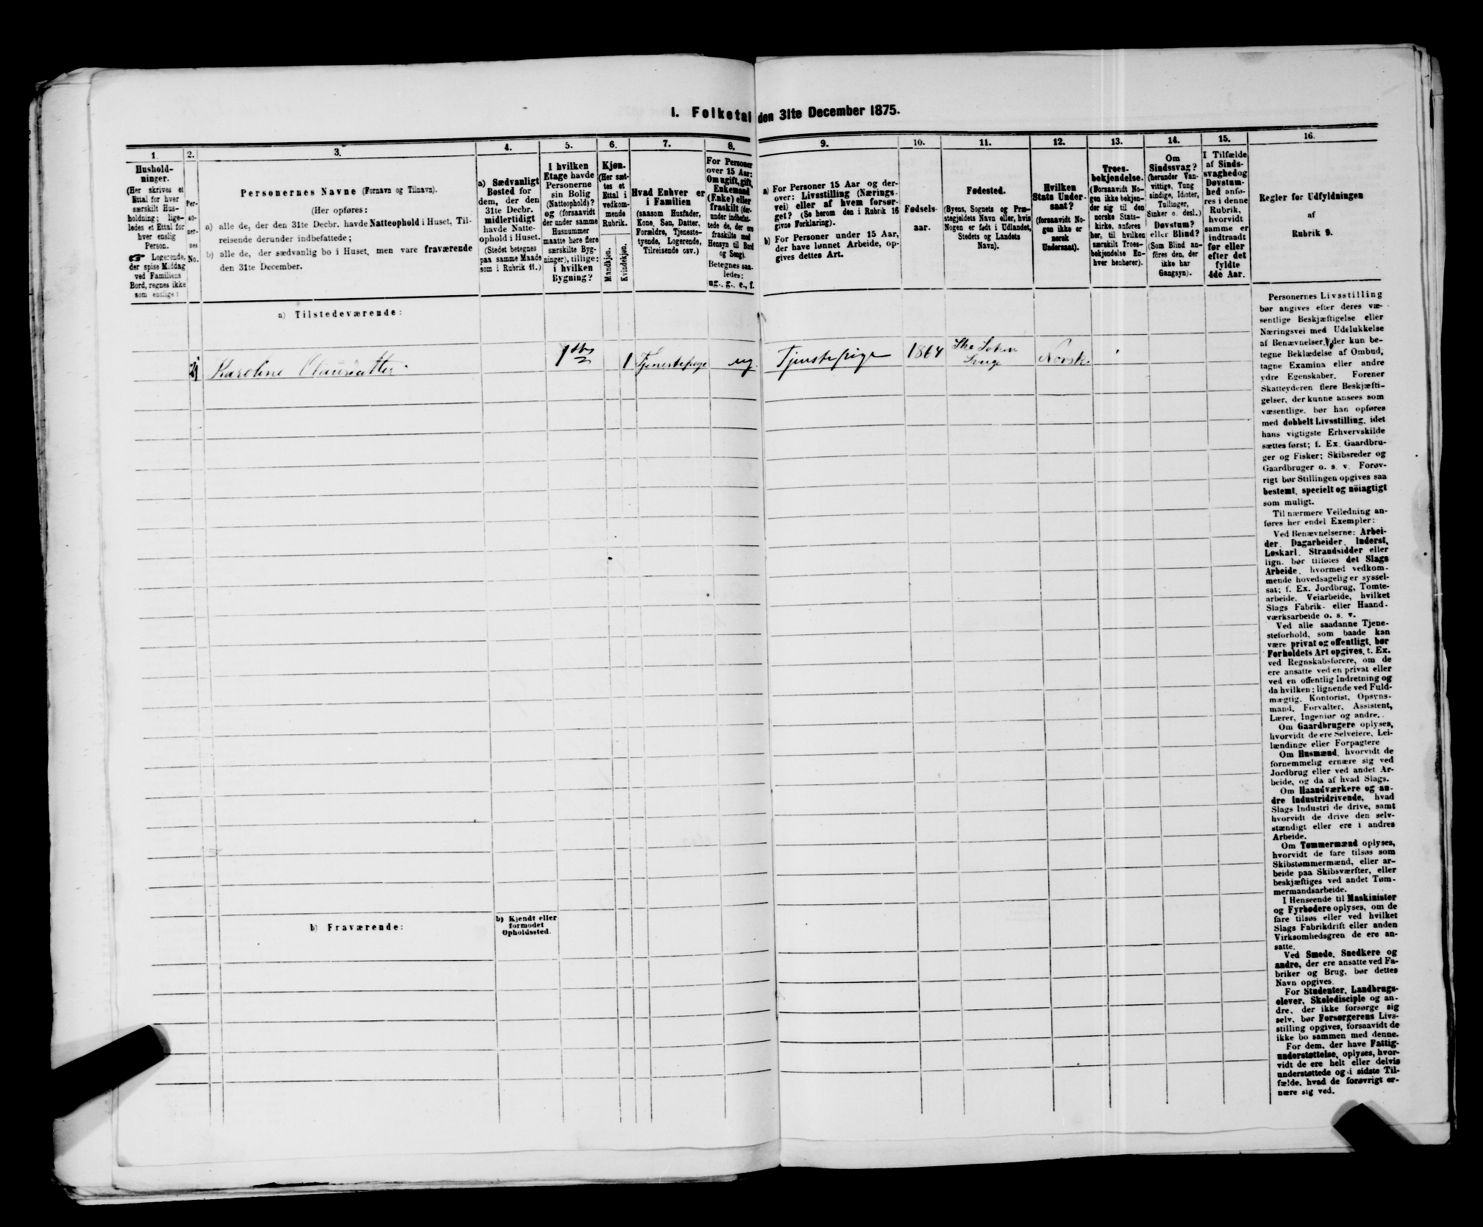 I. Folketal den 31te December 1875.
1.
Hushold-
ninger.
(Her skrives et
Ettal for hver
særskilt Hus-
holdning; lige-
ledes et Ettal for
hver enslig
Person.
☞ Logerende,
der spise Middag
ved Familiens
Bord, regnes ikke
som enslige).
2.
Per-
so-
ner-
nes
No.
3.
Personernes Navne (Fornavn og Tilnavn).
(Her opføres:
a) alle de, der den 31te Decbr. havde Natteophold i Huset, Til-
reisende derunder indbefattede;
b) alle de, der sædvanlig bo i Huset, men vare fraværende
den 31te December.
4.
a) Sædvanligt
Bosted for
dem, der den
31te Decbr.
midlertidigt
havde Natte-
ophold i Huset.
(Stedet betegnes
paa samme Maade
som i Rubrik 11.)
5.
I hvilken
Etage havde
Personerne
sin Bolig
(Natteophold)?
og (forsaavidt
der under samme
Husnummer
maatte høre flere
særskilte Byg-
ninger), tillige:
i hvilken
Bygning?
6.
Kjøn.
(Her sæt-
tes et
Ettal i
vedkom-
mende
Rubrik.
Mandkjøn.
Kvindekjøn.
7.
Hvad Enhver er
i Familien
(saasom Husfader,
Kone, Søn, Datter,
Forældre, Tjeneste-
tyende, Logerende,
Tilreisende osv.)
8.
For Personer
over 15 Aar:
Om ugift, gift,
Enkemand
(Enke) eller
fraskilt (der-
under indbefat-
tede de, der ere
fraskilte med
Hensyn til Bord
og Seng).
Betegnes saa-
ledes:
ug., g., e., f.
9.
a) For Personer 15 Aar og der-
over: Livsstilling (Nærings-
vei) eller af hvem forsør-
get? (Se herom den i Rubrik 16
givne Forklaring).
b) For Personer under 15 Aar,
der have lønnet Arbeide, op-
gives dettes Art.
10.
Fødsels-
aar.
11.
Fødested.
(Byens, Sognets og Præ-
stegjeldets Navn eller, hvis
Nogen er født i Udlandet,
Stedets og Landets
Navn).
12.
Hvilken
Stats Under-
saat?
(forsaavidt No-
gen ikke er
norsk
Undersaat).
13.
Troes-
bekjendelse.
(Forsaavidt No-
gen ikke bekjen-
der sig til den
norske Stats-
kirke, anføres
her, til hvilken
særskilt Troes-
bekjendelse En-
hver henhører).
14.
Om
Sindssvag?
(herunder Van-
vittige, Tung-
sindige, Idioter,
Tullinger,
Sinker o. desl.)
Døvstum?
eller Blind?
(Som Blind an-
føres den, der
ikke har
Gangsyn).
15.
I Tilfælde
af Sinds-
svaghed og
Døvstum-
hed anfø-
res i denne
Rubrik,
hvorvidt
samme er
indtraadt
før eller
efter det
fyldte
4de Aar.
16.
Regler for Udfyldningen
af
Rubrik 9.
a) Tilstedeværende:
1 Karoline 1 Tjenestepige ug Tjenestepige 1864 Norsk
b) Fraværende:
b) Kjendt eller
formodet
Opholdssted.
Personernes Livsstilling
bør angives efter deres væ-
sentlige Beskjæftigelse eller
Næringsvei med Udelukkelse
af Benævnelser, der kun be-
tegne Beklædelse af Ombud,
tagne Examina eller andre
ydre Egenskaber. Forener
Skatteyderen flere Beskjæfti-
gelser, der kunne ansees som
væsentlige, bør han opføres
med dobbelt Livsstilling, idet
hans vigtigste Erhvervskilde
sættes først; f. Ex. Gaardbru-
ger og Fisker; Skibsreder og
Gaardbruger o. s. v. Forøv-
rigt bør Stillingen opgives saa
bestemt, specielt og nøiagtigt
som muligt.
Til nærmere Veiledning an-
føres her endel Exempler:
Ved Benævnelserne: Arbei-
der, Dagarbeider, Inderst,
Løskarl, Strandsidder eller
lign. bør tilføies det Slags
Arbeide, hvormed vedkom-
mende hovedsagelig er syssel-
sat; f. Ex. Jordbrug, Tomte-
arbeide, Veiarbeide, hvilket
Slags Fabrik- eller Haand-
værksarbeide o. s. v.
Ved alle saadanne Tjene-
steforhold, som baade kan
være privat og offentligt, bør
Forholdets Art opgives, f. Ex.
ved Regnskabsførere, om de
ere ansatte ved en privat eller
ved en offentlig Indretning og
da hvilken; lignende ved Fuld-
mægtig, Kontorist, Opsyns-
mand, Forvalter, Assistent,
Lærer, Ingeniør og andre.
Om Gaardbrugere oplyses,
hvorvidt de ere Selveiere, Lei-
lændinge eller Forpagtere
Om Husmænd, hvorvidt de
fornemmelig ernære sig ved
Jordbrug eller ved andet Ar-
beide, og da af hvad Slags.
Om Haandværkere og an-
dre Industridrivende, hvad
Slags Industri de drive, samt
hvorvidt de drive den selv-
stændigt eller ere i andres
Arbeide.
Om Tømmermænd oplyses,
hvorvidt de fare tilsøs som
Skibstømmermænd, eller ar-
beide paa Skibsværfter, eller
beskjæftiges ved andet Tøm-
mermandsarbeide.
I Henseende til Maskinister
og Fyrbødere oplyses, om de
fare tilsøs eller ved hvilket
Slags Fabrikdrift eller anden
Virksomhedsgren de ere an-
satte.
Ved Smede, Snedkere og
andre, der ere ansatte ved Fa-
briker og Brug, bør dettes
Navn opgives.
For Studenter, Landbrugs-
elever, Skoledisciple og an-
dre, der ikke forsørge sig
selv, bør Forsørgerens Livs-
stilling opgives, forsaavidt de
ikke bo sammen med denne.
For dem, der have Fattig-
understøttelse, oplyses, hvor-
vidt de ere helt eller delvis
understøttede og i sidste Til-
fælde, hvad de forøvrigt er-
nære sig ved.